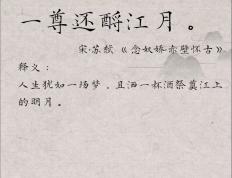 一尊还酹江月。
宋·苏轼《念奴娇·赤壁怀古》
释义：
人生犹如一场梦，且洒一杯酒祭奠江上
的明月。